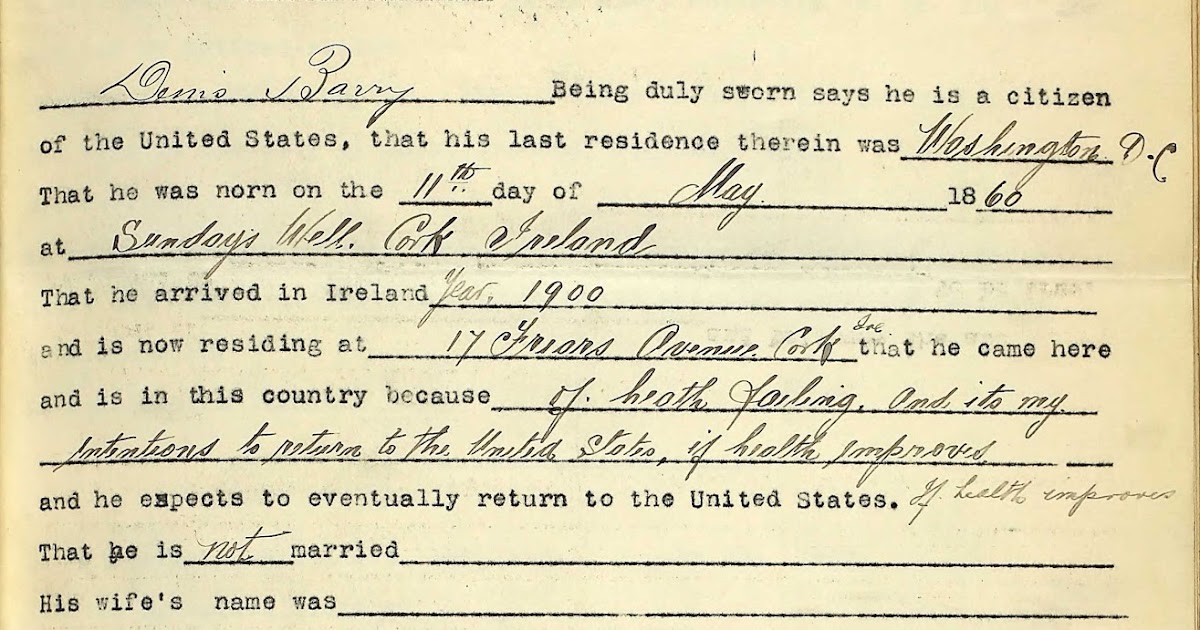 Denis Barry Being duly sworn says he is a citizen
of the United States, that his last residence therein was Washington D.C
That he was norn on the 11th day of May. 1860
at Sunday's Well. Cork Ireland
That he arrived in Ireland Year. 1900
and is now residing at 17 Friars Avenue. Cork Ire that he came here
and is in this country because of. heath faeling. And its my
intentions to return to the United States, if health improves
and he expects to eventually return to the United States. If health improves
That he is not married
His wife's name was